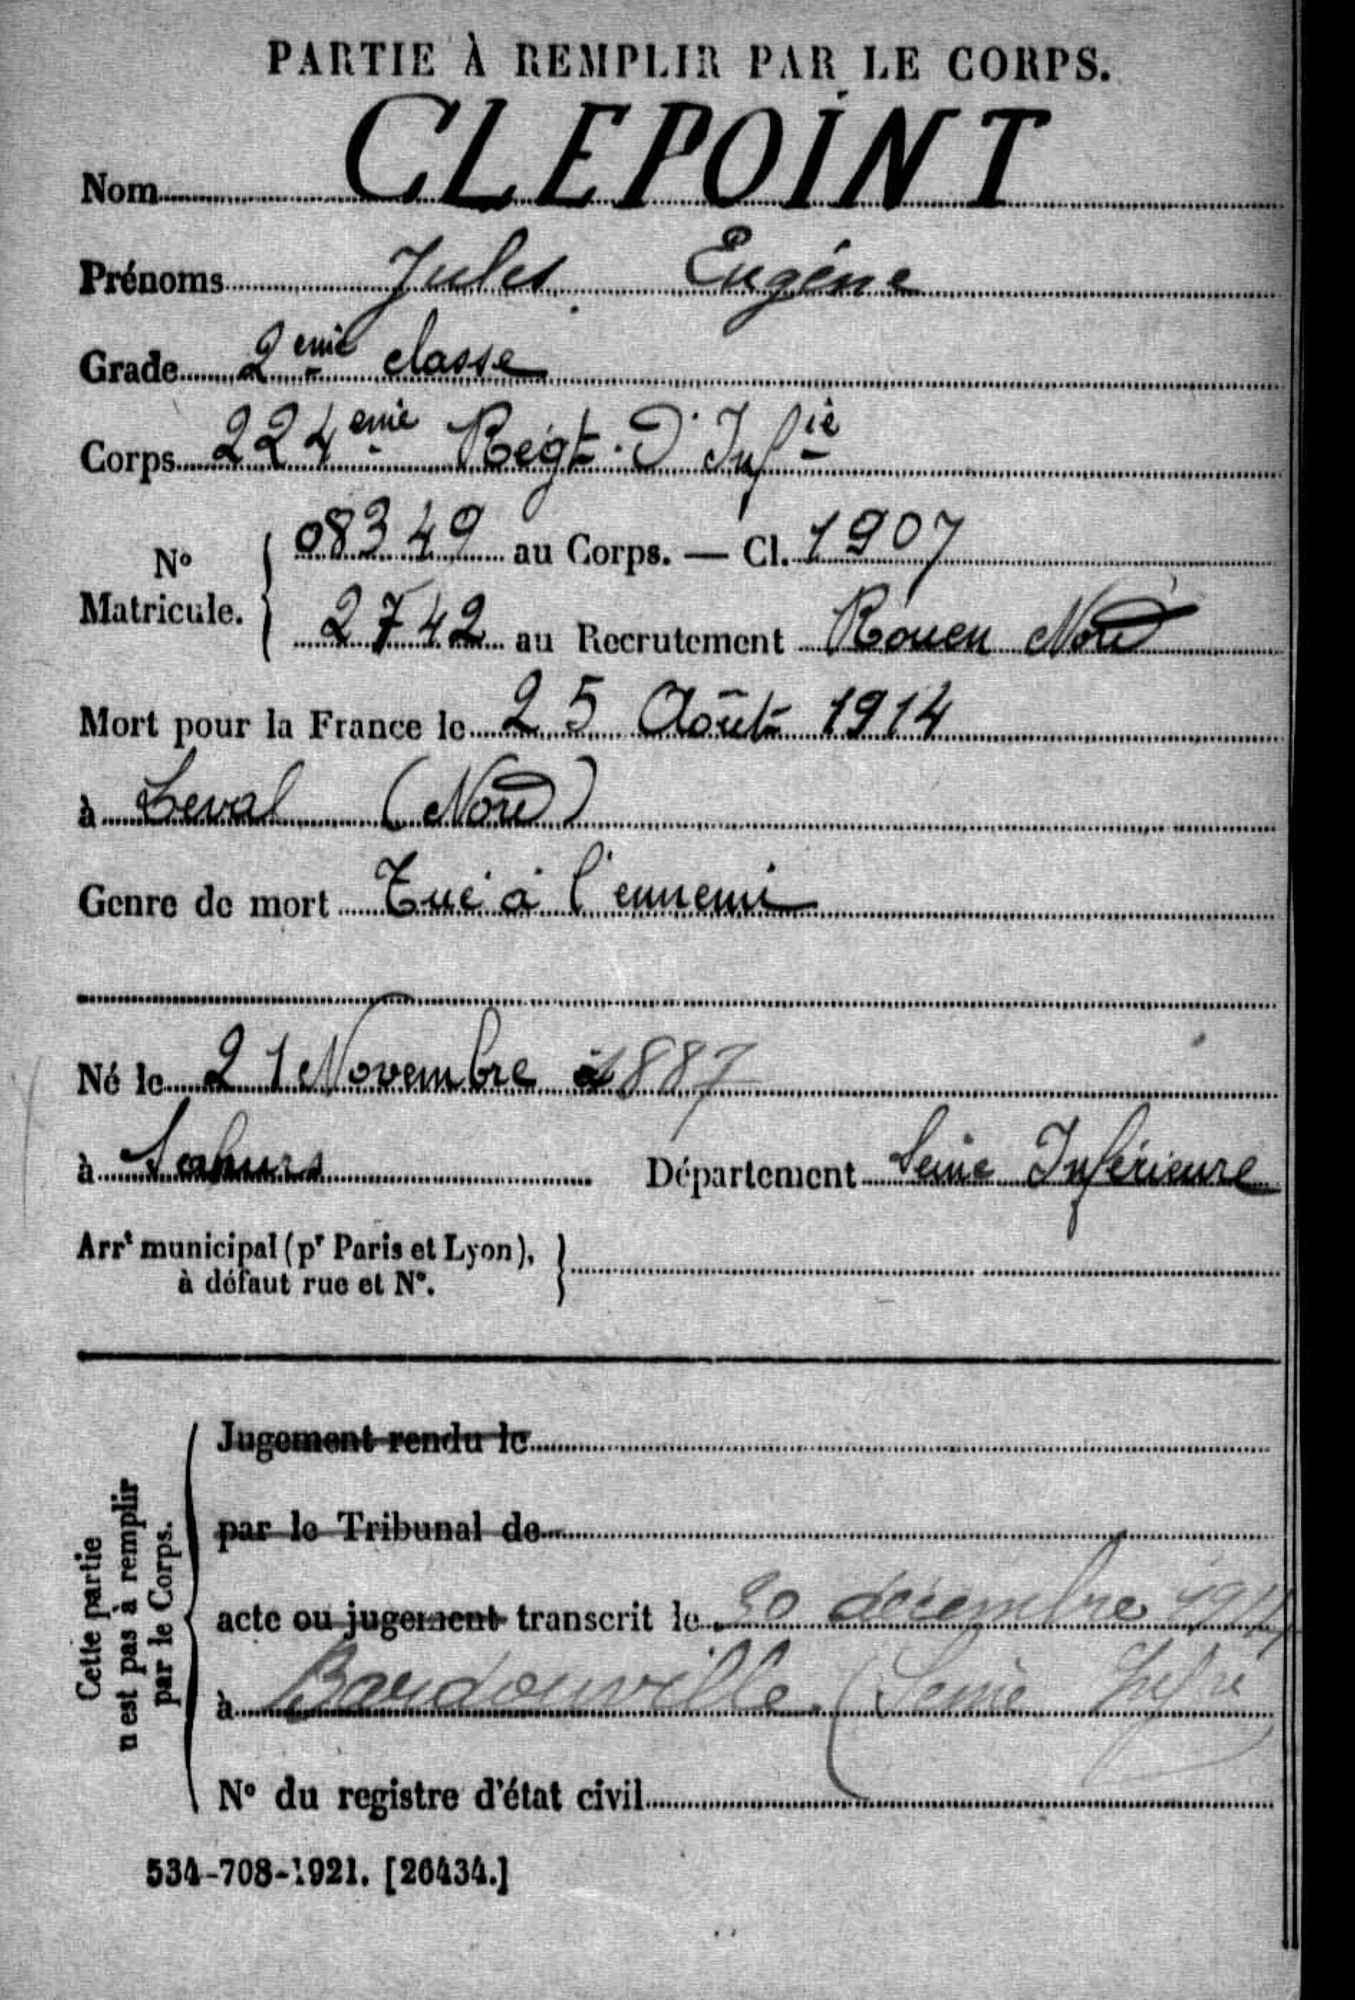 PARTIE À REMPLIR PAR LE CORPS.
Nom CLEPOINT
Prénoms Jules Eugène
Grade 2eme classe
Corps 224eme Régt. D'Infie
No Matricule. { 08349 au Corps. — Cl. 1907
2742 au Recrutement Rouen Nord
Mort pour la France le 25 Août 1914
à Leval (Nord)
Genre de mort Tué à l'ennemi
Né le 21 Novembre 1887
à Sahurs Département Seine Inférieure
Arrt municipal (pr Paris et Lyon), à défaut rue et No. }
Cette partie n'est pas à remplir par le Corps.
Jugement rendu le
par le Tribunal de
acte ou jugement transcrit le décembre
à Bardouville (Seine Infre
No du registre d'état civil
534-708-1921. [26434.]